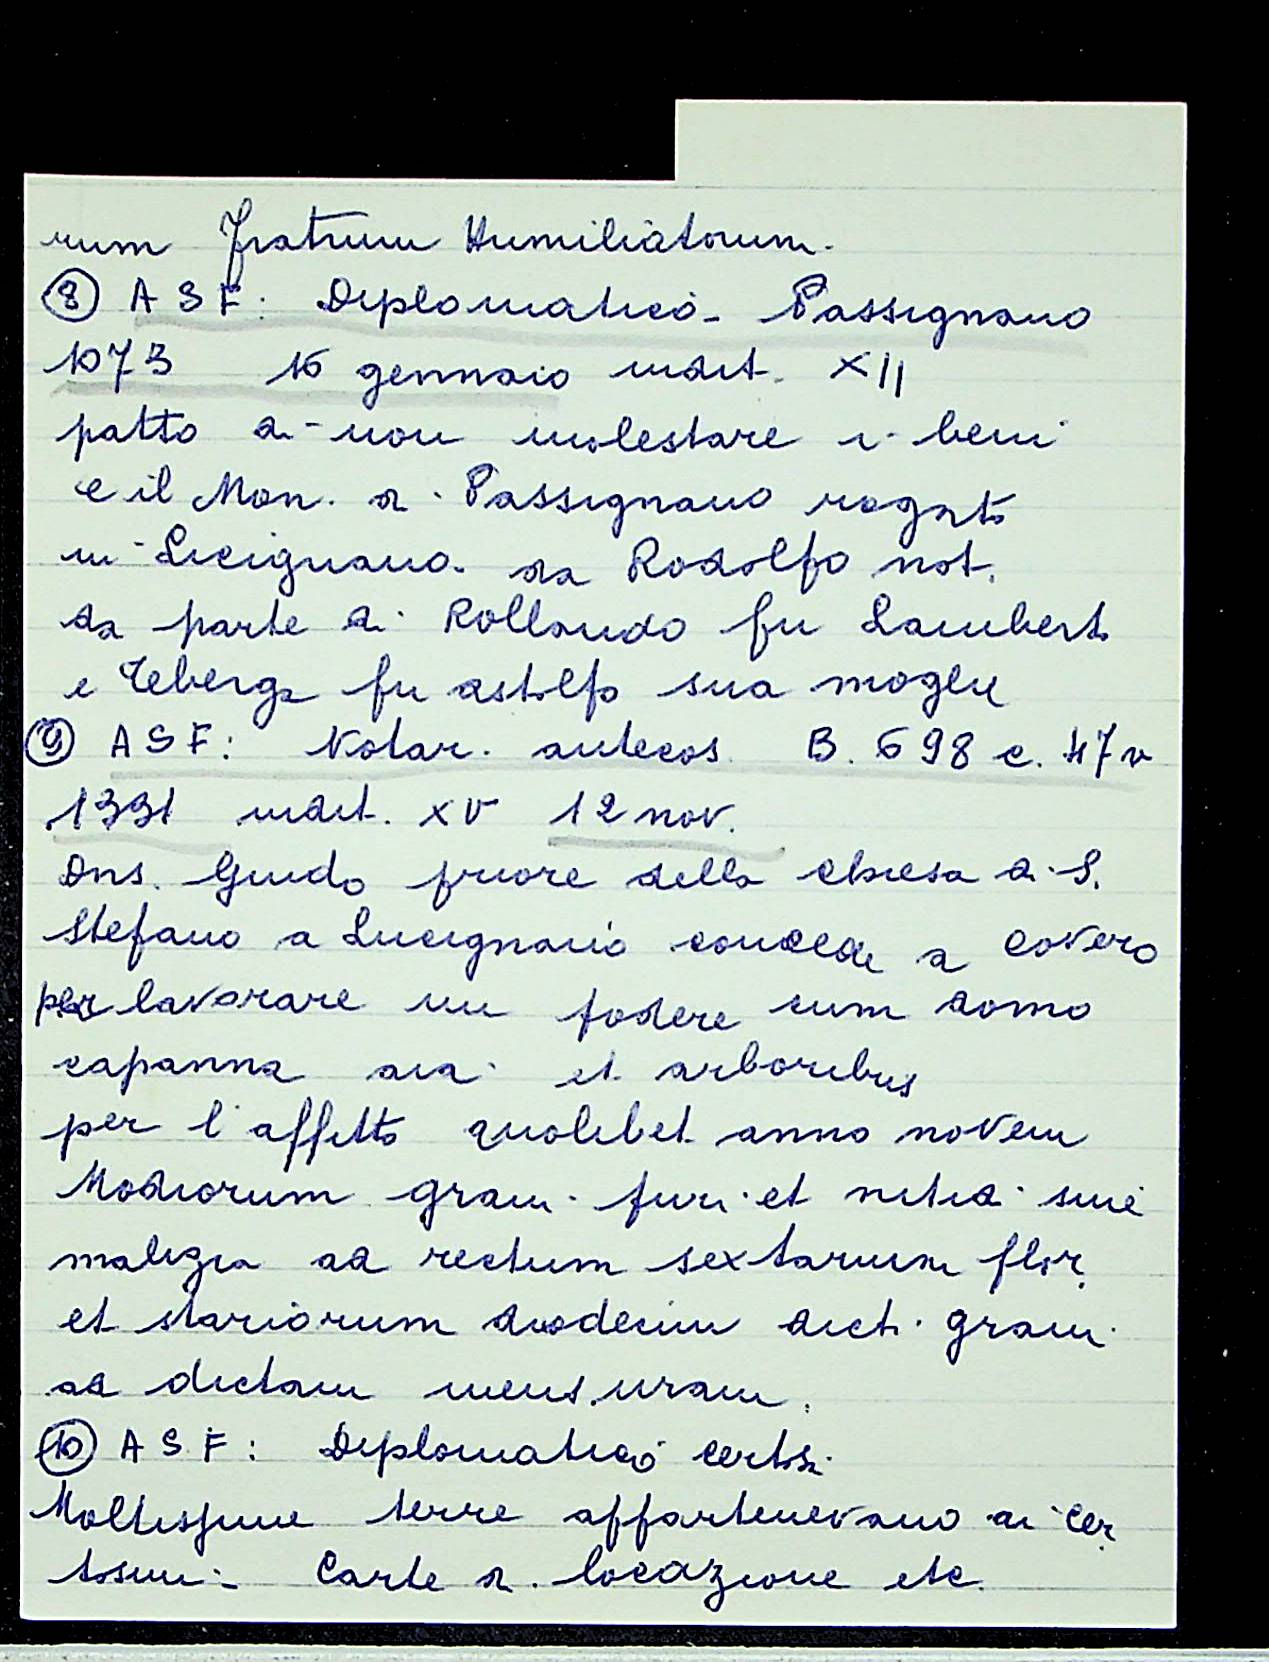 rum Fratrum Humiliatorum.
⑧ A S F: Diplomatico - Passignano
1073 16 gennaio indit. XII
patto di non molestare i beni
e il Mon. di Passignano rogato
in Lucignano da Rodolfo not.
da parte di Rollando fu Lamberto
e Teberga fu astolfo sua moglie
⑨ A S F: Notar. antecos. B. 698 c. 47v
1331 indit. XV 12 nov.
Dns. Guido priore della chiesa di S.
Stefano a Lucignano concede a
per lavorare un podere cum domo
capanna aia et arboribus
per l'affitto quolibet anno novem
Modiorum gran. puri et nitidi sine
malizia ad rectum sextarium flor.
et stariorum duodecim dict. gran.
ad dictam mensuram.
⑩ A S F: Diplomatico Certosa.
Moltissime terre appartenevano ai Cer
tosini - Carte di locazione etc.